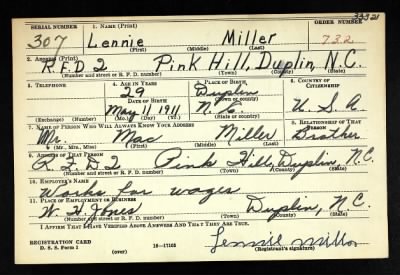 33321
SERIAL NUMBER 1. NAME (Print) ORDER NUMBER
307 Lennie Miller 732
(First) (Middle) (Last)
2. ADDRESS (Print)
R.F.D 2 Pink Hill, Duplin, N.C.
(Number and street or R. F. D. number) (Town) (County) (State)
3. TELEPHONE 4. AGE IN YEARS 5. PLACE OF BIRTH 6. COUNTRY OF CITIZENSHIP
29 Duplin
DATE OF BIRTH (Town or county)
May 11 1911 N.C. U.S.A
(Exchange) (Number) (Mo.) (Day) (Yr.) (State or country)
7. NAME OF PERSON WHO WILL ALWAYS KNOW YOUR ADDRESS 8. RELATIONSHIP OF THAT PERSON
Mr. Mac Miller Brother
(Mr., Mrs., Miss) (First) (Middle) (Last)
9. ADDRESS OF THAT PERSON
R.F.D 2 Pink Hill, Duplin, N.C.
(Number and street or R. F. D. number) (Town) (County) (State)
10. EMPLOYER'S NAME
Works for wages
11. PLACE OF EMPLOYMENT OR BUSINESS
W. H. Jones Duplin, N.C.
(Number and street or R. F. D. number) (Town) (County) (State)
I AFFIRM THAT I HAVE VERIFIED ABOVE ANSWERS AND THAT THEY ARE TRUE.
REGISTRATION CARD
D. S. S. Form 1 (over) 16—17105 Lennie Miller
(Registrant's signature)